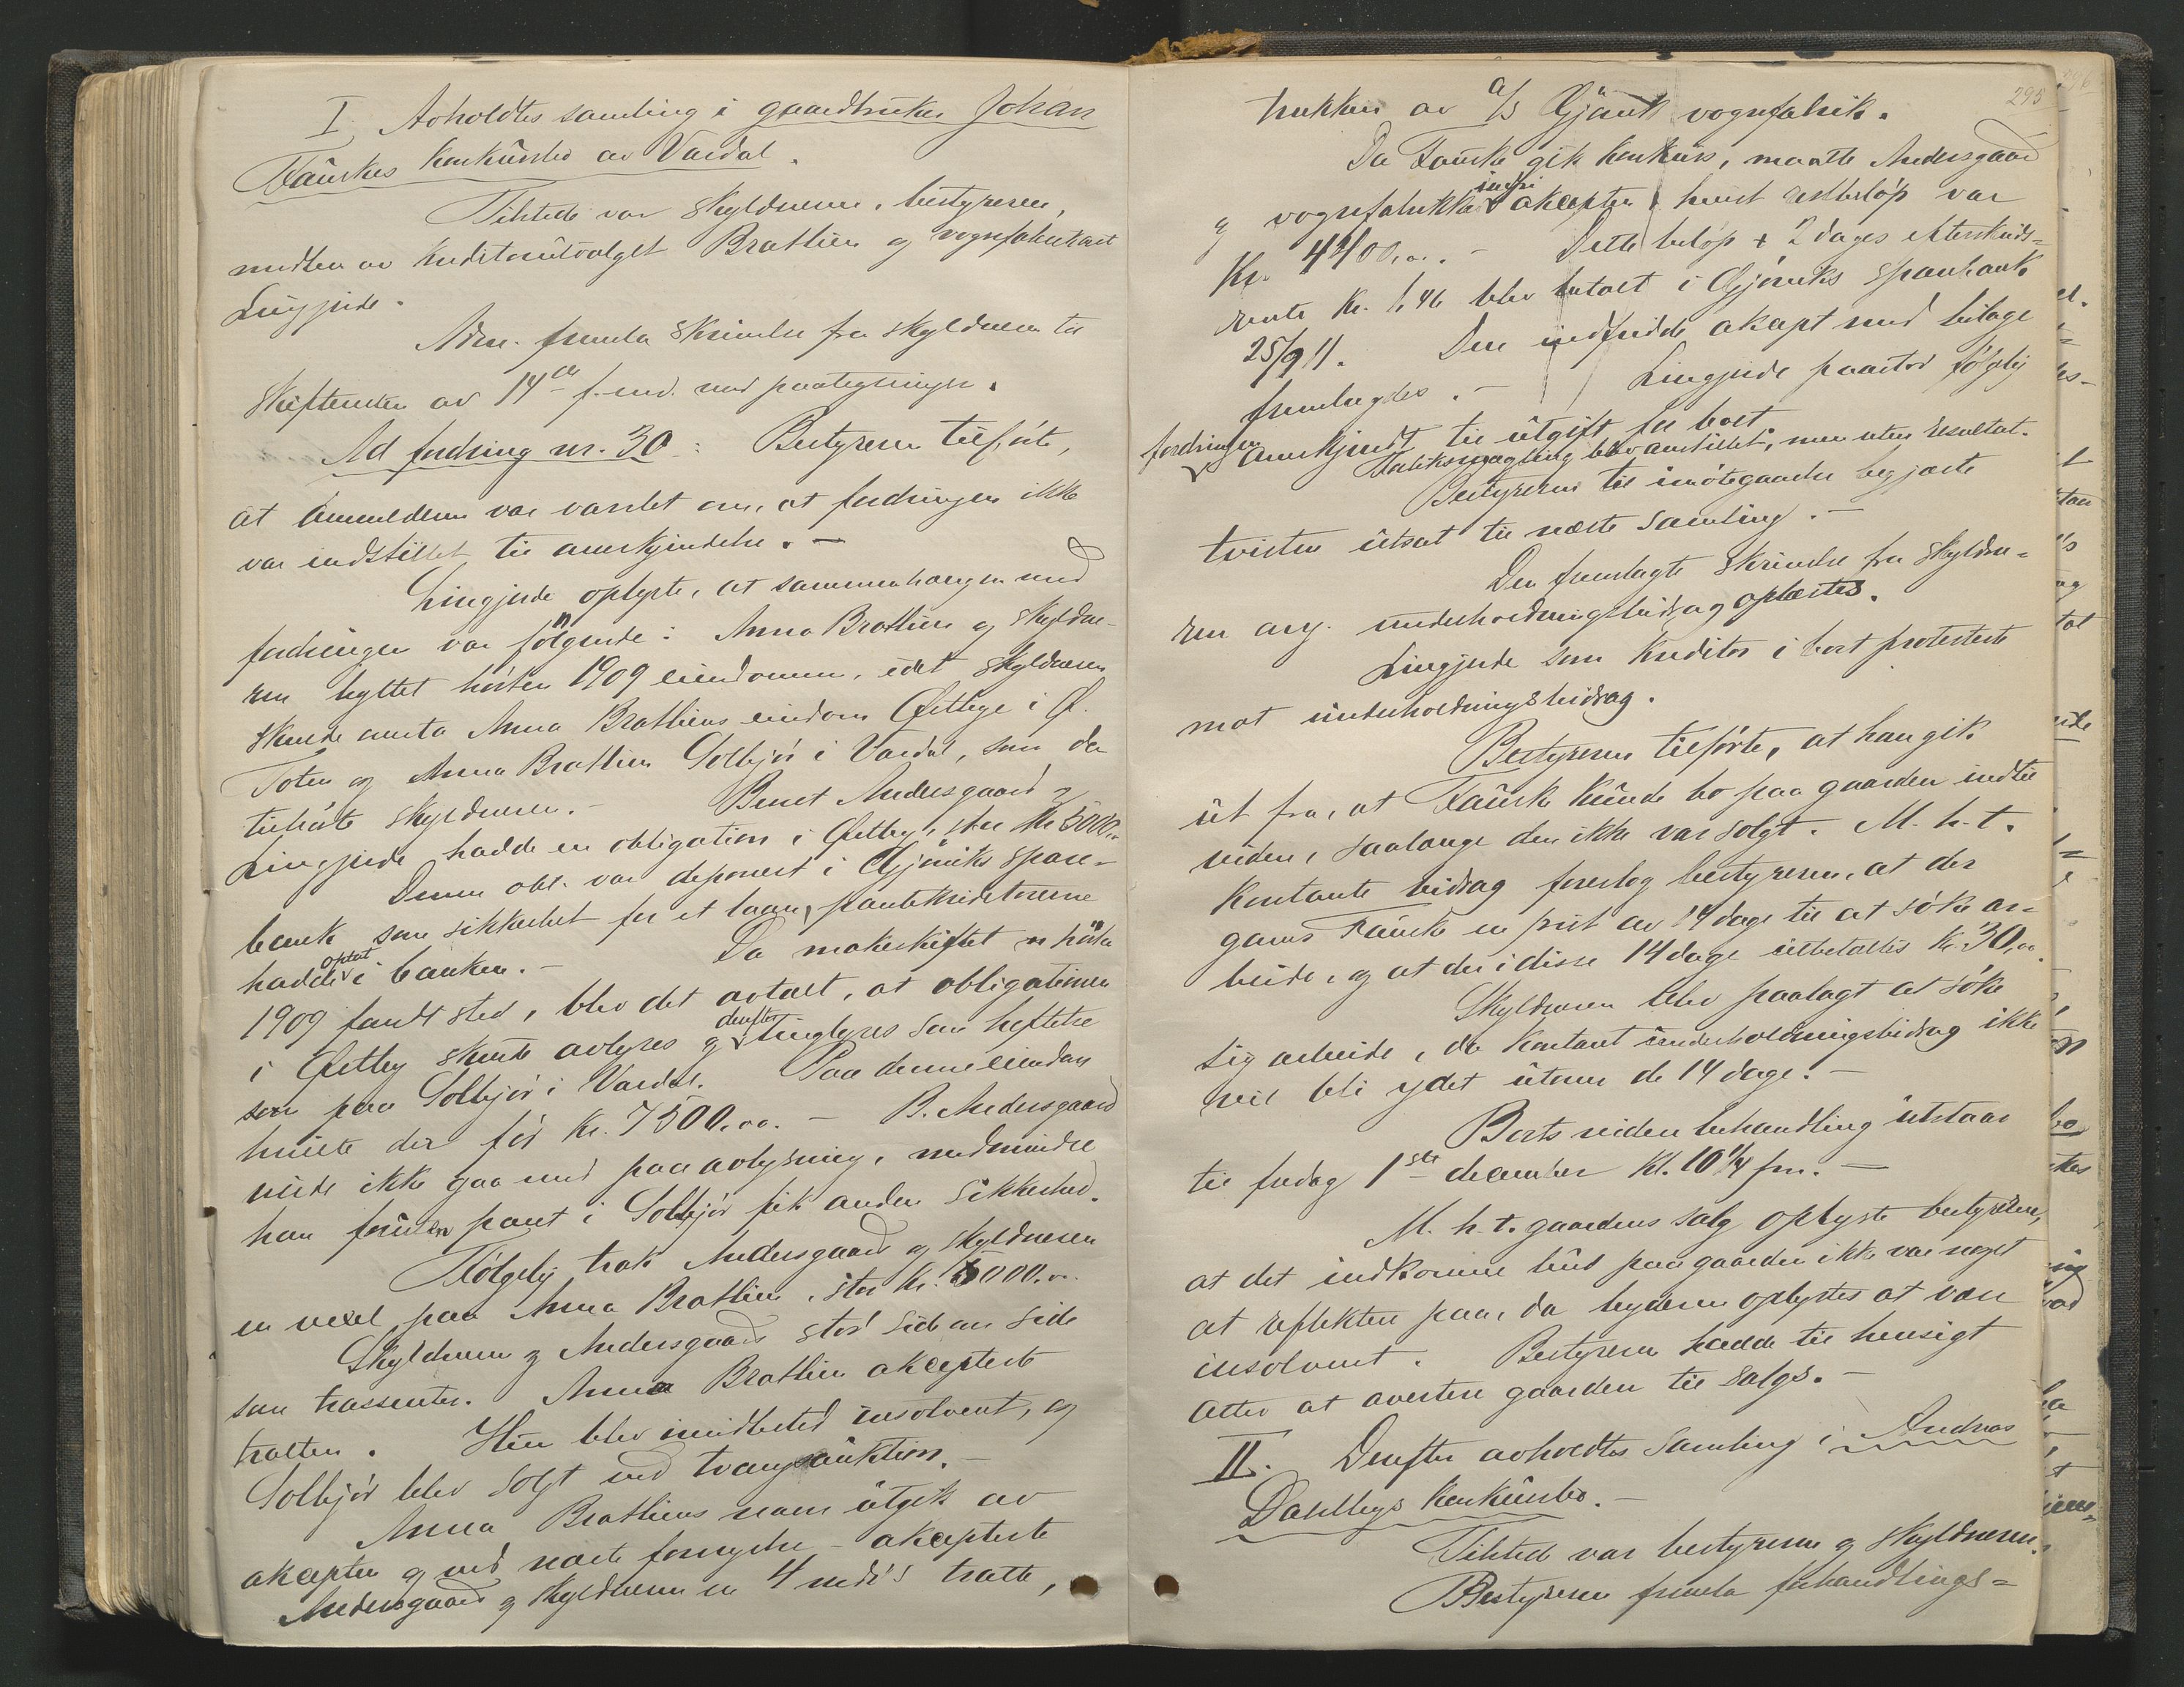 I. Avholdtes samling i gaardbruker Johan
Fauskes konkursbo av Vardal.
Tilstede var skyldneren, bestyreren,
medlem av kreditorutvalget Brathien og vognfabrikant
Lingjerde.
Adm. fremla skrivelse fra skyldneren til
skifteretten av 14de f. md. med paategninger.
Ad fordring nr. 30: Bestyreren tilførte,
at anmelderen var varslet om, at fordringen ikke
var indstillet til anerkjendelse. —
Lingjerde oplyste, at sammenhængen med
fordringen var følgende: Anna Brathien og skyldne-
ren byttet høsten 1909 eiendomme, idet skyldneren
skulde overta Anna Brathiens eiendom Østbye i Ø.
Toten og Anna Brathien Solbjør i Vardal, som da
tilhørte skyldneren. — Bernt Andersgaard og
Lingjerde hadde en obligation i Østby, stor kr. 5000,-
Denne obl. var deponert i Gjøviks spare-
bank som sikkerhet for et laan, pantekreditorerne
hadde optat i banken. — Da makeskiftet høsten
1909 fandt sted, blev det avtalt, at obligationen
i Østby skulde avlyses og derefter tinglyses som heftelse
paa Solbjør i Vardal. Paa denne eiendom
hvilte der før kr. 7500,00. — B. Andersgaard
vilde ikke gaa med paa avlysning, medmindre
han foruten pant i Solbjør fik anden sikkerhed.
Følgelig trak Andersgaard og skyldneren
en vexel paa Anna Brathien, stor kr. 5000,00.
Skyldneren og Andersgaard stod side om side
som trassenter. Anna Brathien akcepterte
tratten. Hun blev imidlertid insolvent, og
Solbjør blev solgt ved tvangsauktion. —
Anna Brathiens navn utgik av
akcepten og ved næste fornyelse — akcepterte
Andersgaard og skyldneren en 4 mdr's tratte,
295
trukken av A/S Gjøvik vognfabrik.
Da Fauske gik konkurs, maatte Andersgaard
og vognfabrikken indfri akcepten, hvis restbeløp var
Kr. 4400,00. — Dette beløp + 2 dages efterskuds-
rente kr. 1,46 blev betalt i Gjøviks sparebank
25/9 11. Den indfridde akcept med bilage
fremlagdes. — Lingjerde paastod følgelig
fordringen anerkjendt til utgift for boet.
Forliksmægling blev anstillet, men uten resultat.
Bestyreren til imøtegaaelse begjærte
tvisten utsat til næste samling. —
Den fremlagte skrivelse fra skyldne-
ren ang. underholdningsbidrag oplæstes.
Lingjerde som kreditor i boet protesterte
mot underholdningsbidrag.
Bestyreren tilførte, at han gik
ut fra, at Fauske kunde bo paa gaarden indtil
viden, saalænge den ikke var solgt. M. h. t.
kontante bidrag foreslog bestyreren, at der
gaves Fauske en frist av 14 dage til at søke ar-
beide, og at der i disse 14 dage utbetaltes kr. 30,00.
Skyldneren blev paalagt at søke
sig arbeide, da kontant underholdningsbidrag ikke
vil bli ydet utover de 14 dage. —
Boets videre behandling utstaar
til fredag 1ste december kl. 10 1/4 fm. —
M. h. t. gaardens salg oplyste bestyreren,
at det indkomne bud paa gaarden ikke var noget
at reflektere paa, da byderen oplystes at være
insolvent. Bestyreren hadde til hensigt
atter at avertere gaarden til salgs. —
II. Derefter avholdtes samling i Andreas
Dahlbys konkursbo. —
Tilstede var bestyreren og skyldneren.
Bestyreren fremla forhandlings-